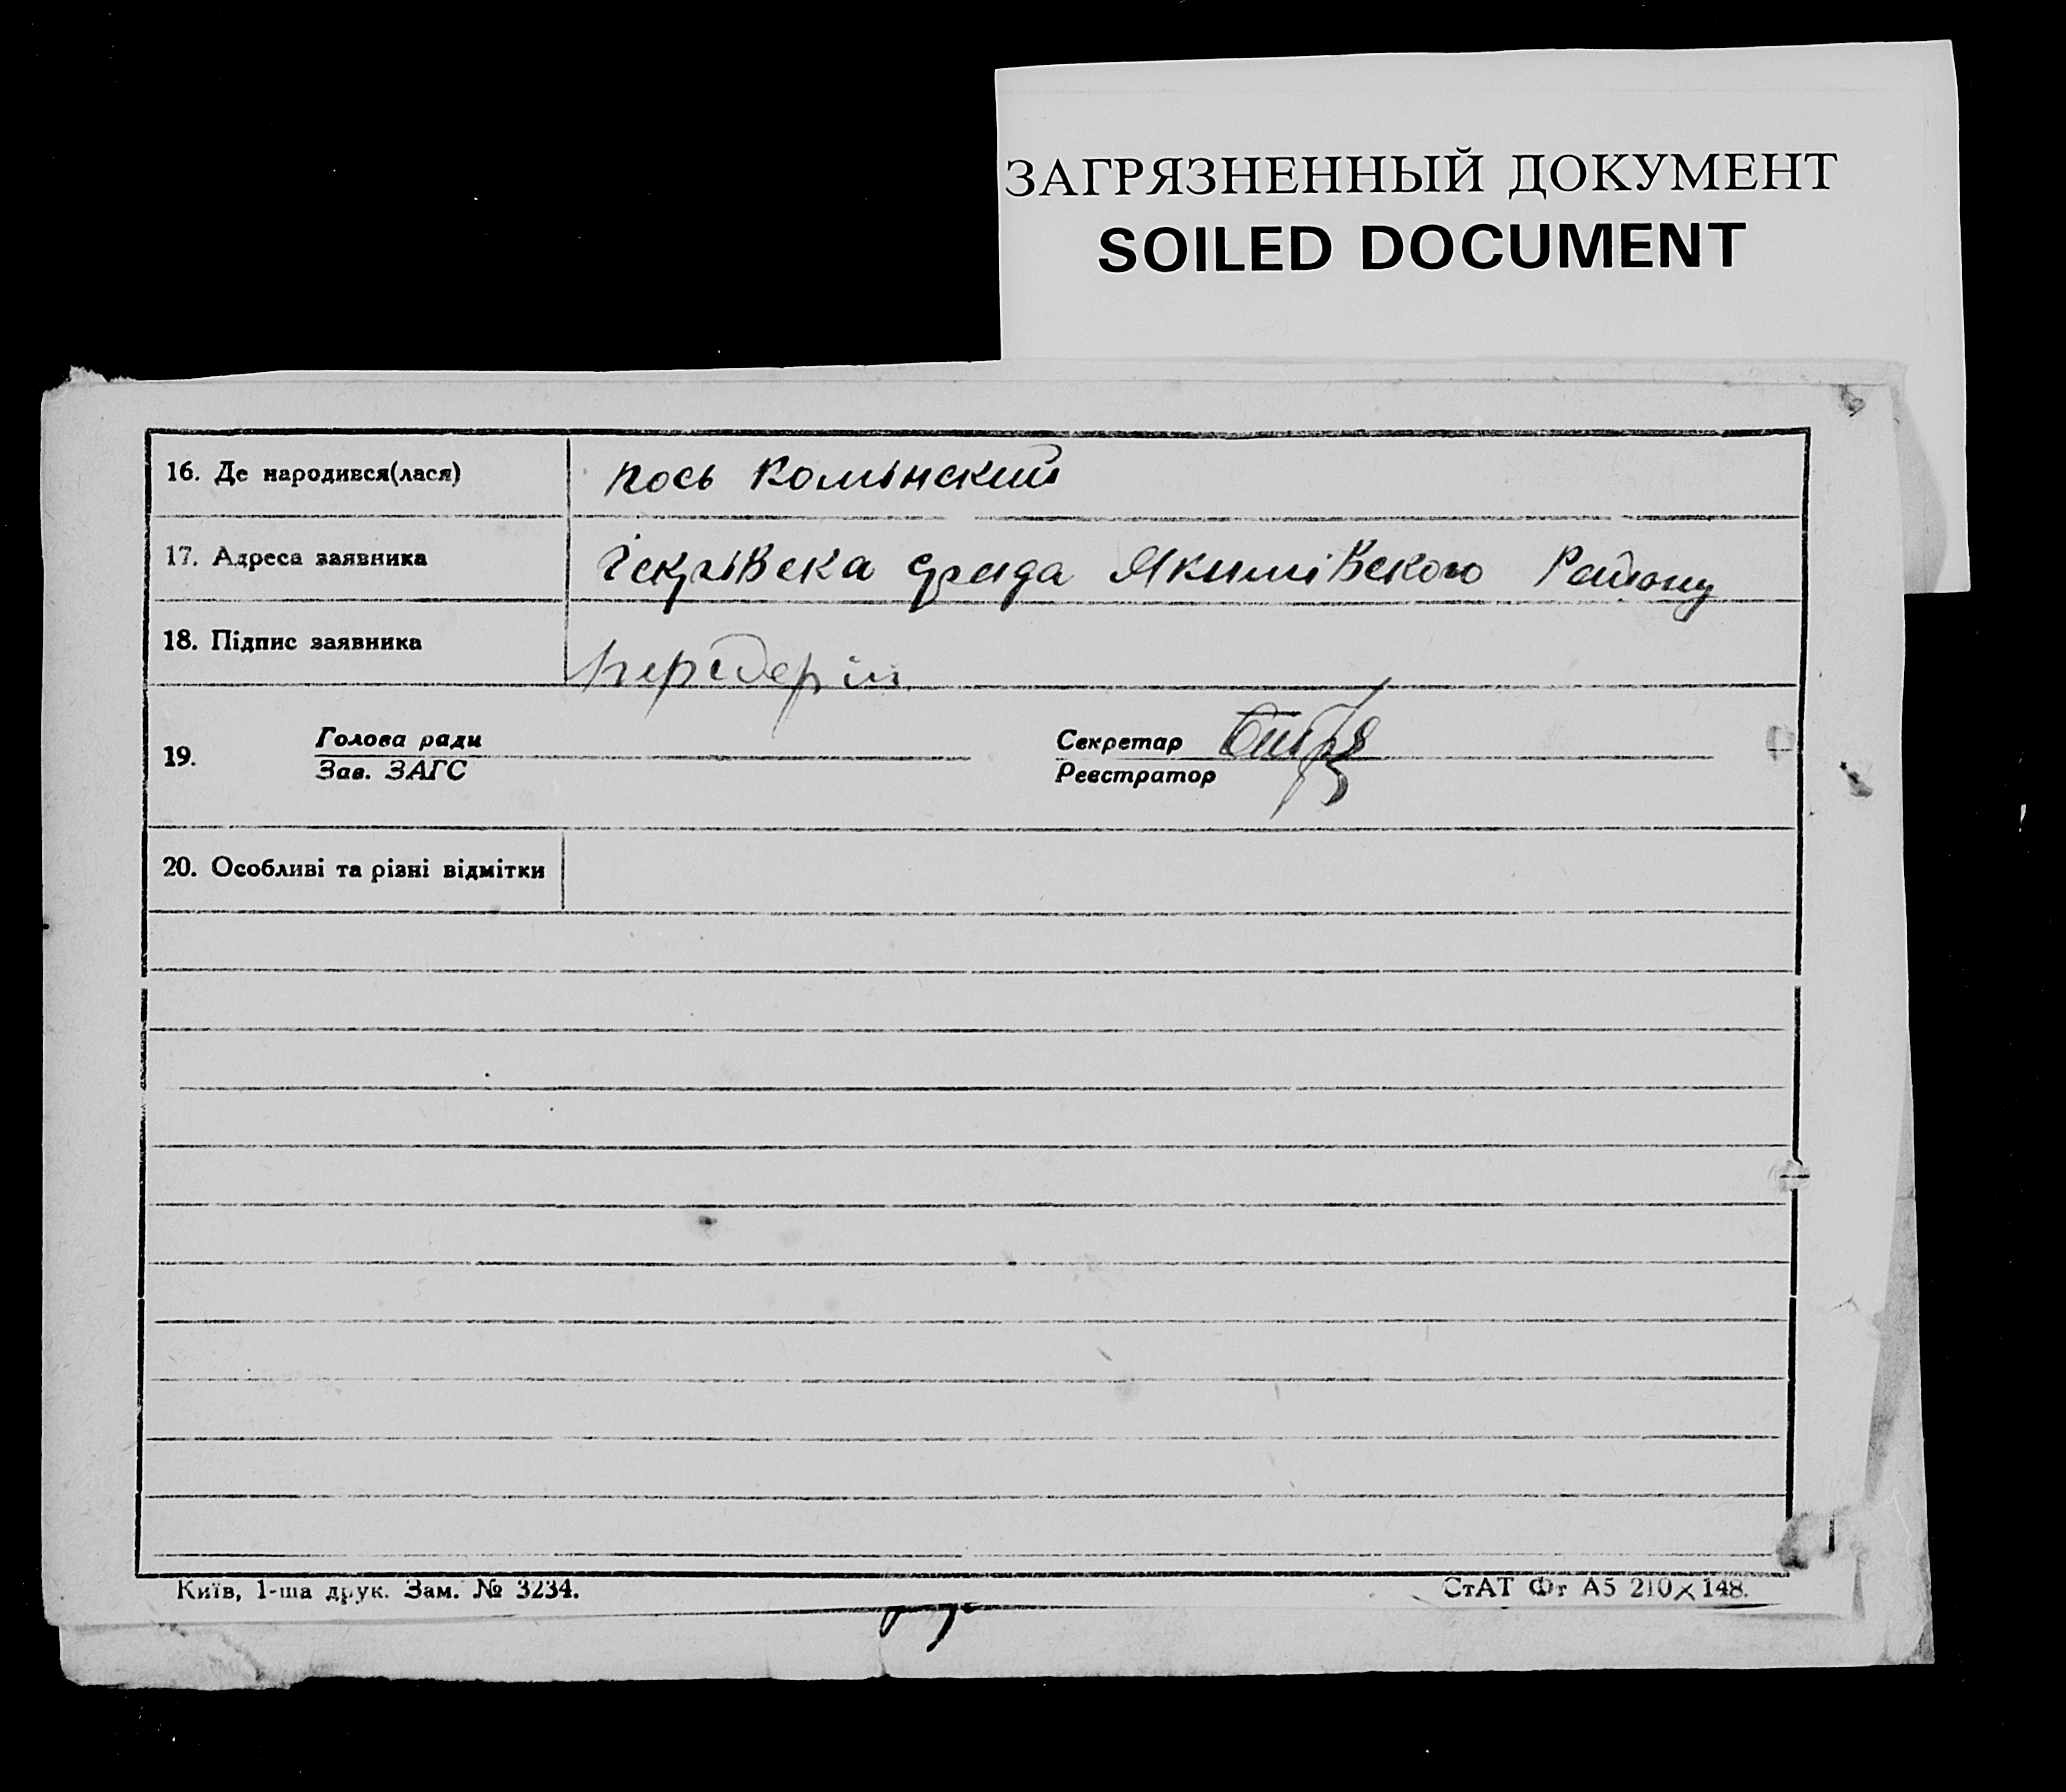 ЗАГРЯЗНЕННЫЙ ДОКУМЕНТ
SOILED DOCUMENT
16. Де народився(лася) пось Комінский
17. Адреса заявника Якимівского Району
18. Підпис заявника
19. Голова ради Секретар
Зав. ЗАГС Реєстратор
20. Особливі та різні відмітки
Київ, 1-ша друк. Зам. № 3234. СтАТ Фт А5 210×148.